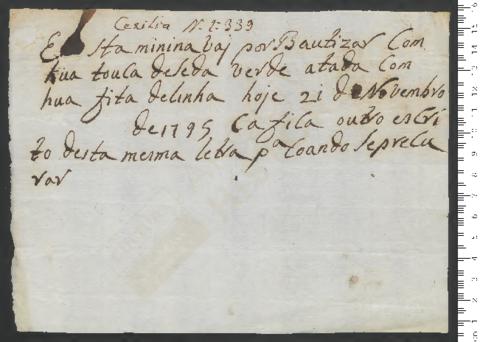 Cexilia N. 1:339
Esta minina vaj por Bautizar Com
hua touca deseda verde atada Com
hua fita delinha hoje 21 de Novembro
de 1795 Ca fica outro escri
to desta mesma letra pª Coando Seprecu
rar